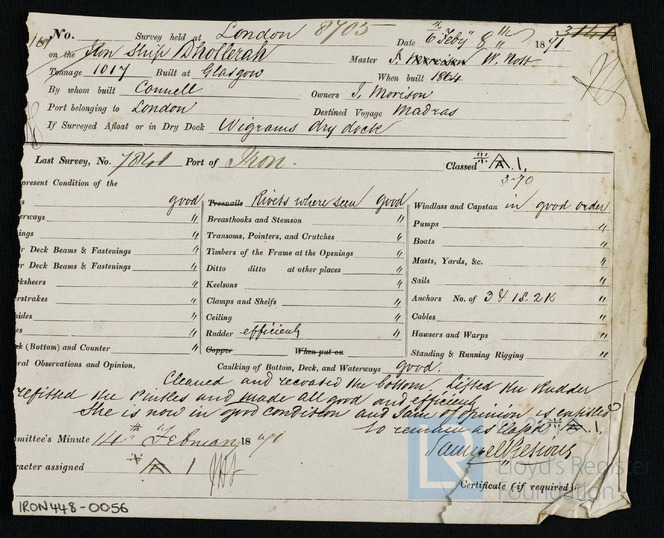 No. Survey held at London 8705 Date 6th Feby 8th 1871. 3141
on the Iron Ship Dhollerah Master W. Nott
Tonnage 1017 Built at Glasgow When built 1864
By whom built Connell Owners J. Morison
Port belonging to London Destined Voyage Madras
If Surveyed Afloat or in Dry Dock Wigrams dry dock
Last Survey, No. 7841 Port of Iron. Classed A 1.
3-70
present Condition of the
good Treenails Rivets where seen good Windlass and Capstan in good order
erways " Breasthooks and Stemson " Pumps "
ings " Transoms, Pointers, and Crutches " Boats "
er Deck Beams & Fastenings " Timbers of the Frame at the Openings " Masts, Yards, &c. "
er Deck Beams & Fastenings " Ditto ditto at other places " Sails "
ksheers " Keelsons " Anchors No. of 3 & 1S. 2K "
erstrakes " Clamps and Shelfs " Cables "
sides " Ceiling " Hawsers and Warps "
es " Rudder efficient " Standing & Running Rigging "
k (Bottom) and Counter " Copper When put on
ral Observations and Opinion, Caulking of Bottom, Deck, and Waterways good.
Cleaned and recoated the bottom. Lifted the Rudder
refitted the Pintles and made all good and efficient
She is now in good condition and I am of opinion is entitled
to remain as A 1.
mmittee's Minute 14th February 1871
racter assigned A 1
Lloyd's Register
Foundation
Certificate (if required).
IRON448-0056